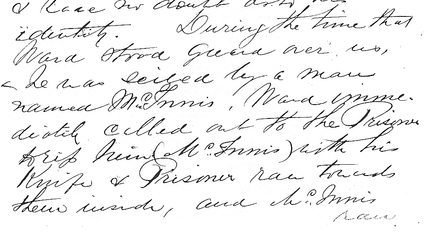 & have no doubt as to his
identity. During the time that
Ward stood guard over us,
he was seized by a man
named McInnis, Ward imme-
diately called out to the Prisoner
to rip him (McInnis) with his
Knife & Prisoner ran towards
them inside, and McInnis
ran